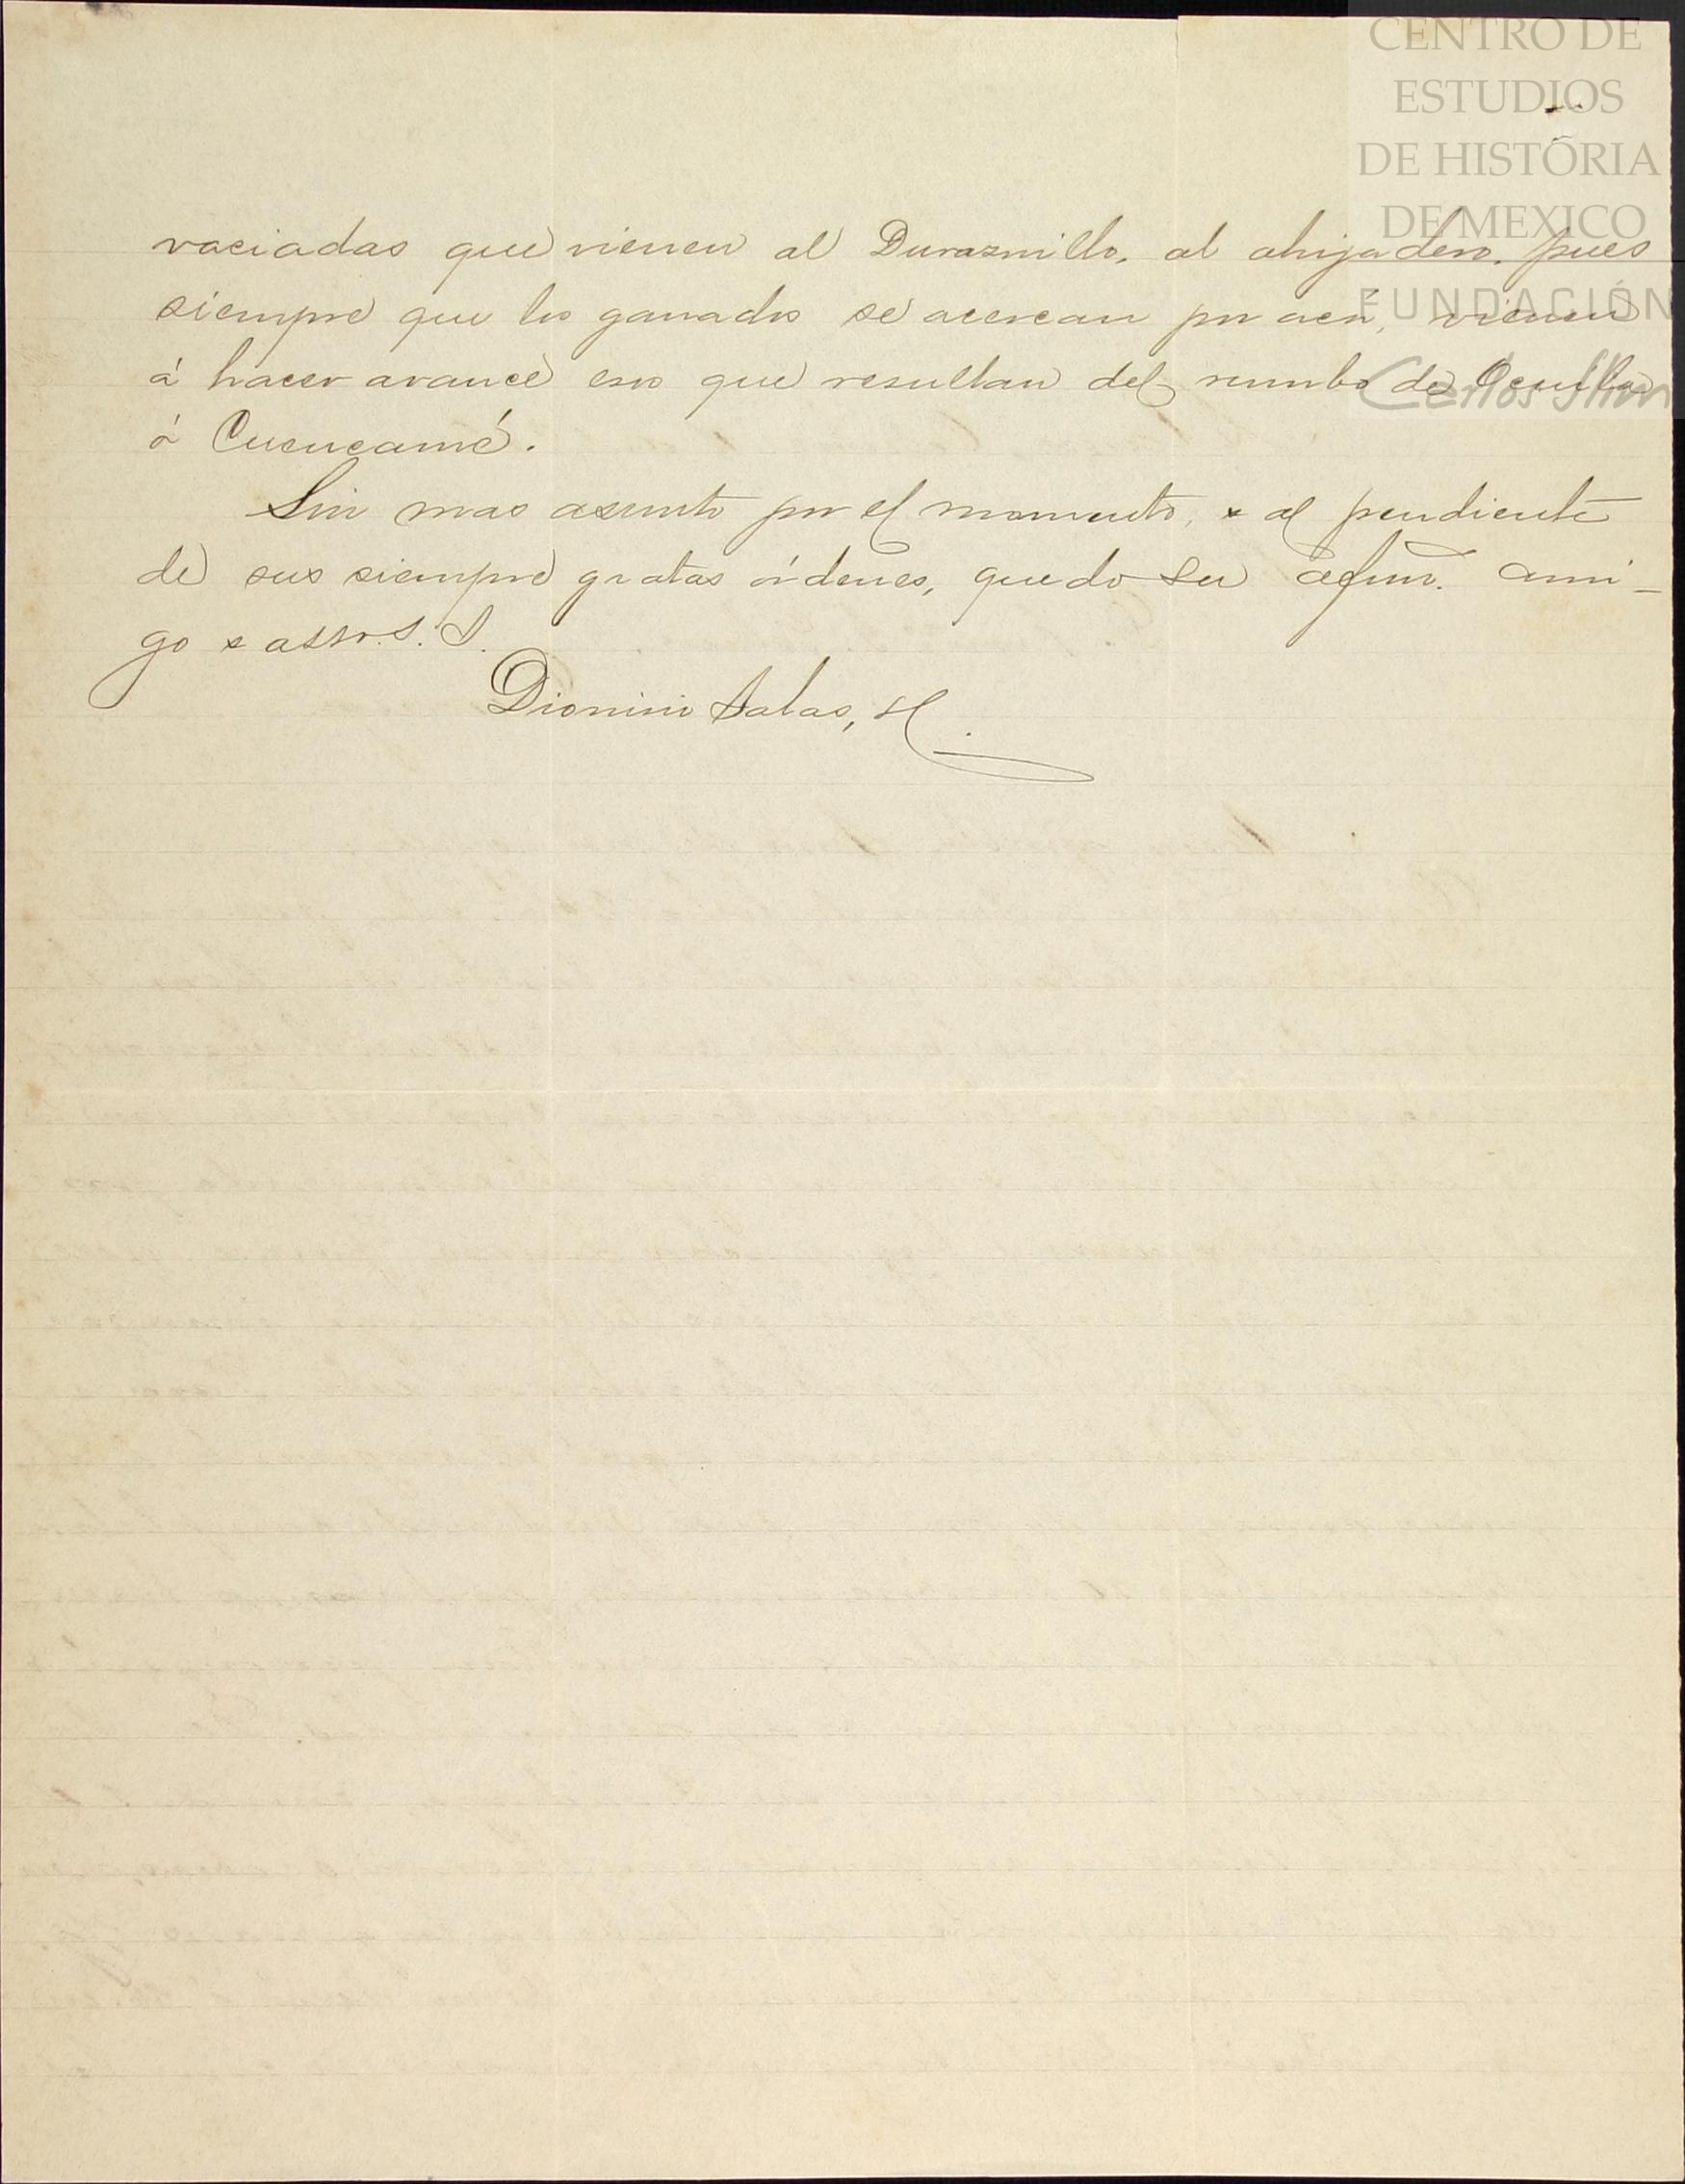 CENTRO DE
ESTUDIOS
DE HISTÓRIA
DE MEXICO
FUNDACIÓN
Carlos Slim
vaciadas que vienen al Duraznillo, al ahijadero. pues
siempre que los ganados se acercan por acá, vienen
á hacer avance esos que resultan del rumbo de Ocuila
ó Cuencamé.
Sin mas asunto por el momento, y al pendiente
de sus siempre gratas órdenes, quedo su afmo. ami-
go y atto. S. S.
Dionisio Salas, H.